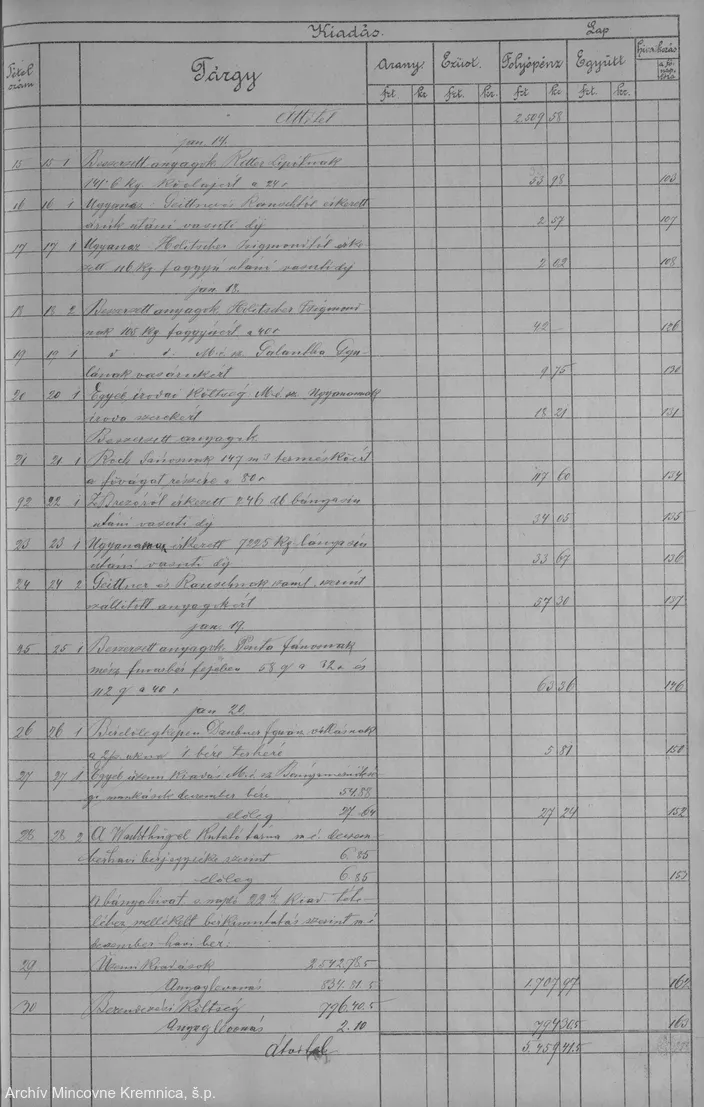 Kiadás.
Lap
Tétel szám
Tárgy
Arany
Ezüst.
Folyópénz
Együtt
Hivatkozás
a fő napló
frt kr
frt. kr.
frt kr
frt. kr.
Áttétel 2509 58
jan. 14.
15 15 1 Beszerzett anyagok Lipótnak
141.6 kg kőolajért a 24 r 33 98 103
16 16 1 Ugyanaz Geittner és Rauschtól érkezett
áruk utáni vasuti díj 2 57 107
17 17 1 Ugyanaz Holitscher Zsigmondtól érke-
zett 116 kg faggyú utáni vasuti díj 2 02 108
jan. 18.
18 18 2 Beszerzett anyagok Holitscher Zsigmond
nak 105 kg faggyuért a 40 r 42 - 126
19 19 1 " " M. é. sz. Galantha Gyu-
lának vasárukért 9 75 130
20 20 1 Egyéb irodai Költség M. é. sz. Ugyanannak
iroda szerekért 18 21 131
Beszerzett anyagok
21 21 1 Roch Jánosnak 147 m3 terméskőért
a fővágat részére a 80 r 117 60 134
22 22 1 Z. Brezóról érkezett 246 db bányasín
utáni vasuti díj 34 05 135
23 23 1 Ugyanaz érkezett 7225 kg. bányasín
utáni vasuti díj 33 67 136
24 24 2 Geittner és Rauschnak szml. szerint
szállított anyagokért 57 30 137
jan. 19.
25 25 1 Beszerzett anyagok Jánosnak
mész fuvarbér fejében 58 q a 32 r és
112 q a 40 r 63 36 146
jan. 20.
26 26 1 Béreldegképen Daubner
a 1 bére terhére 5 81 150
27 27 1 Egyéb üzemi Kiadás M. é. sz.
munkások december bére 54.88
előleg 27.64 27 24 152
28 28 2 A Kutató tárna m. é. decem-
berhavi bérjegyzéke szerint 6.85
előleg 6.85 153
A bányahivat. a. napló 29 d. Kiad. téte-
léhez mellékelt bérkimutatás szerint m. é.
december havi bér:
29 Üzemi Kiadások 2542.78.5
Anyaglevonás 834.81.5 1.707 97 162
30 Berendezési Költség 796.40.5
Anyag levonás 2.10 794 30.5 163
Átvitel 5.459 41.5
Archív Mincovne Kremnica, š.p.